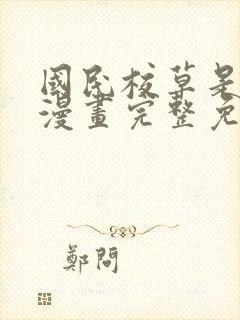 國民校草是
漫畫完整免
鄭問